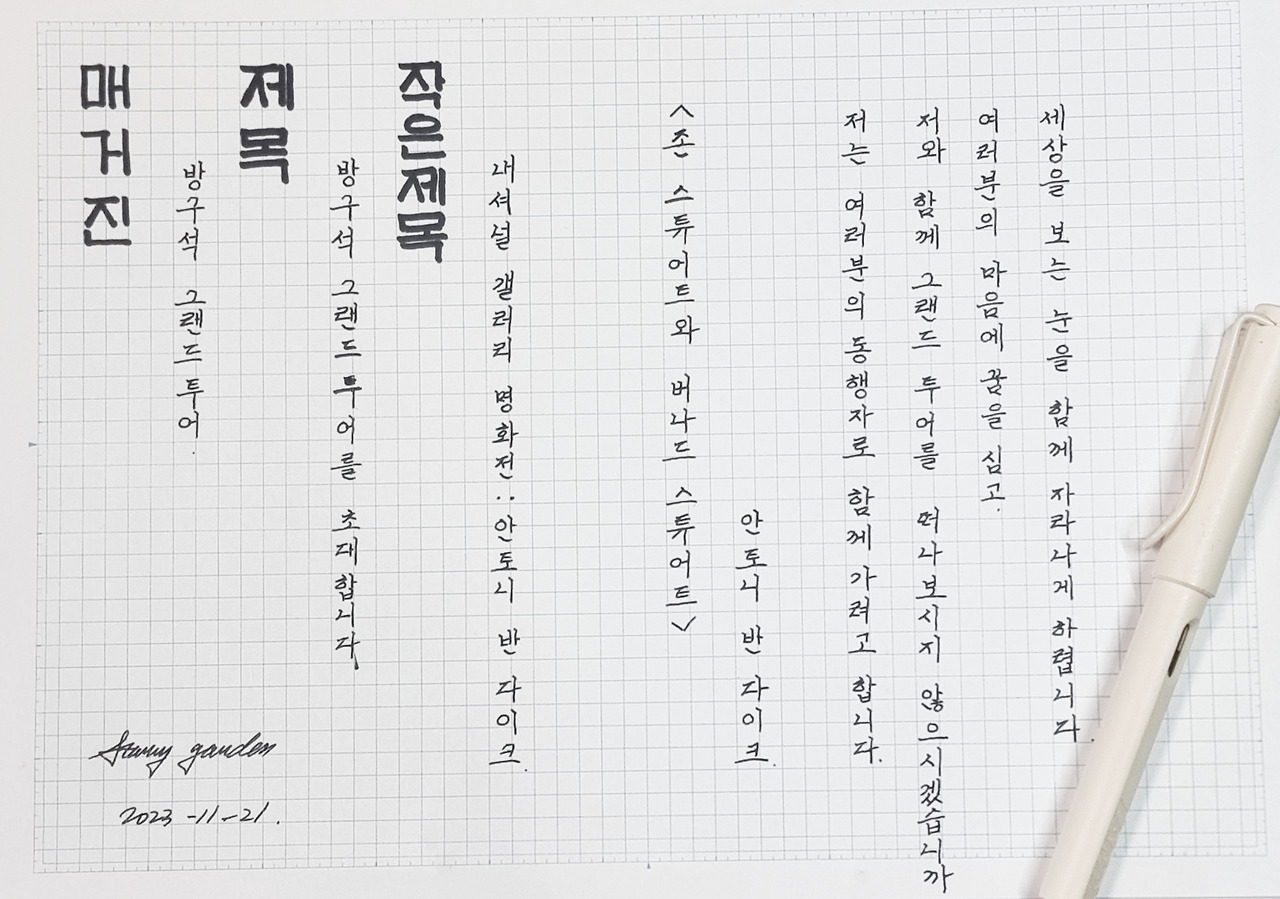 매거진
방구석 그랜드 투어.
제목
방구석 그랜드 투어를 초대합니다,
작은제목
내셔널 갤러리 명화전: 안토니 반 다이크.
<존 스튜어트와 버나드 스튜어트>
안토니 반 다이크.
저는 여러분의 동행자로 함께 가려고 합니다.
저와 함께 그랜드 투어를 떠나보시지 않으시겠습니까
여러분의 마음에 꿈을 심고.
세상을 보는 눈을 함께 자라나게 하렵니다.
Starry garden
2023-11-21.